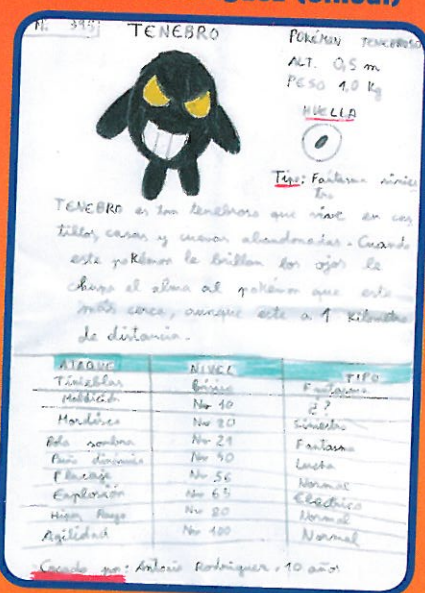 N. 395
TENEBRO
POKÉMON TENEBROSO
ALT. 0,5 m
PESO 1,0 Kg
HUELLA
Tipo: Fantasma sinies
tro
TENEBRO es tan tenebroso que vive en cas
tillos, casas y cuevas abandonadas. Cuando
este pokémon le brillan los ojos le
chupa el alma al pokémon que este
más cerca, aunque este a 1 kilometro
de distancia.
ATAQUE NIVEL TIPO
Tinieblas Básico Fantasma
Maldición Nv 10 ¿?
Mordisco Nv 20 Siniestro
Bola sombra Nv 21 Fantasma
Puño dinámico Nv 50 Lucha
Placaje Nv 56 Normal
Explosión Nv 65 Eléctrico
Hiper Rayo Nv 80 Normal
Agilidad Nv 100 Normal
Cazado por: Antonio Rodriguez, 10 años